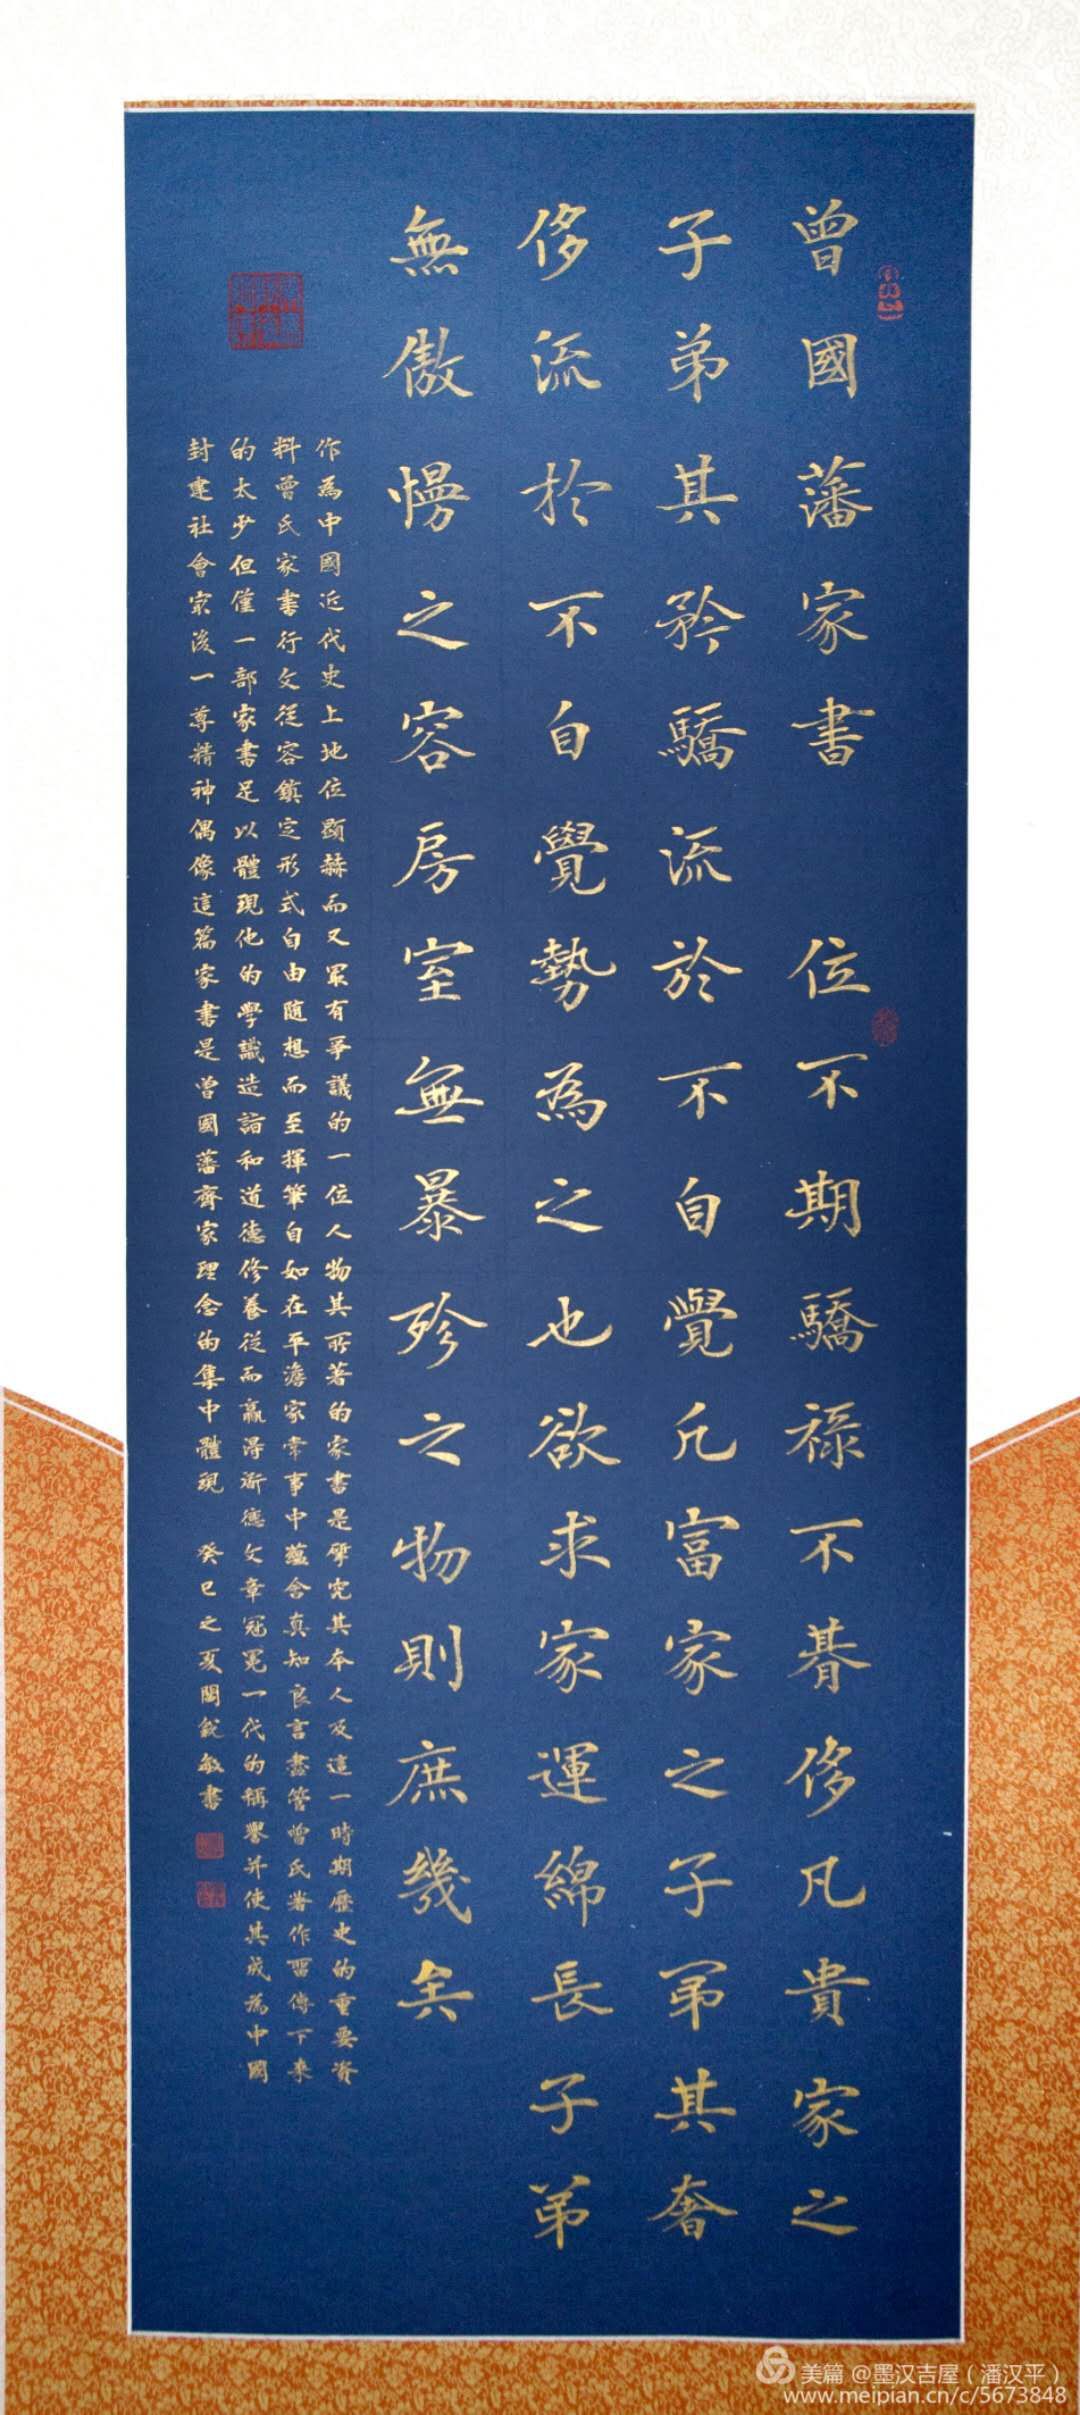 曾國藩家書　位不期驕祿不朞侈凡貴家之
子弟其矜驕流於不自覺凡富家之子弟其奢
侈流於不自覺勢為之也欲求家運綿長子弟
無傲慢之容房室無暴殄之物則庶幾矣
作為中國近代史上地位顯赫而又最有爭議的一位人物其所著的家書是研究其本人及這一時期歷史的重要資
料曾氏家書行文從容鎮定形式自由隨想而至揮筆自如在平澹家常事中蘊含真知良言盡管曾氏著作留傳下來
的太少但僅一部家書足以體現他的學識造詣和道德修養從而贏得道德文章冠冕一代的稱譽并使其成為中國
封建社會最後一尊精神偶像這篇家書是曾國藩齊家理念的集中體現　癸巳之夏閩敏書
美篇 @墨汉吉屋（潘汉平）
www.meipian.cn/c/5673848